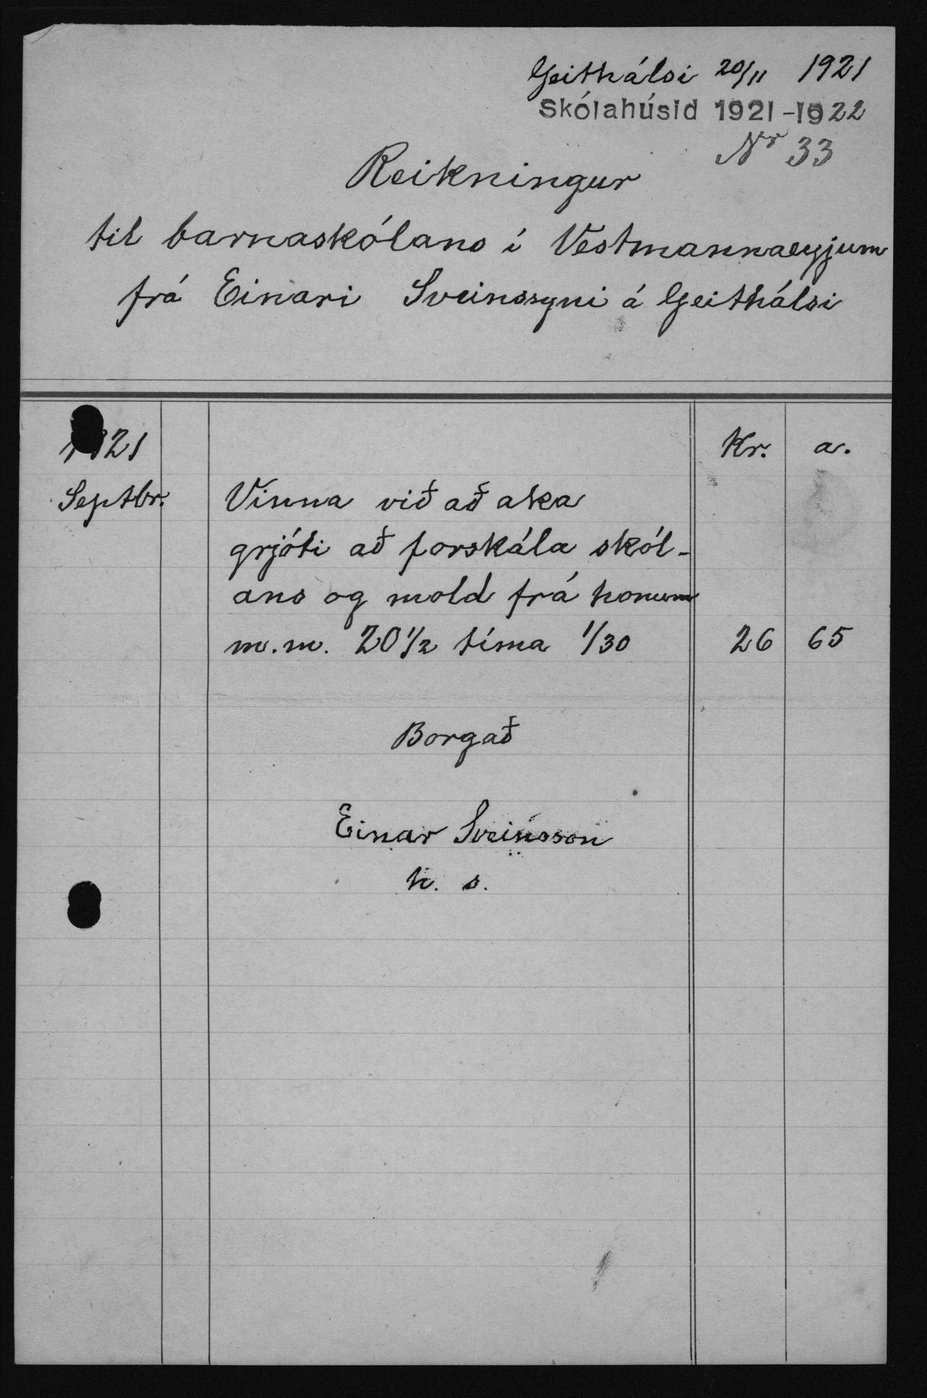 Geithálsi 20/11 1921
Skólahúsid 1921-1922
Nr 33
Reikningur
til barnaskólans í Vestmannaeyjum
frá Einari Sveinssyni á Geithálsi
1921 Kr. a.
Septbr. Vinna við að aka
grjóti að forskála skól-
ans og mold frá honum
m.m. 20 1/2 tíma 1/30 26 65
Borgað
Einar Sveinsson
h. s.